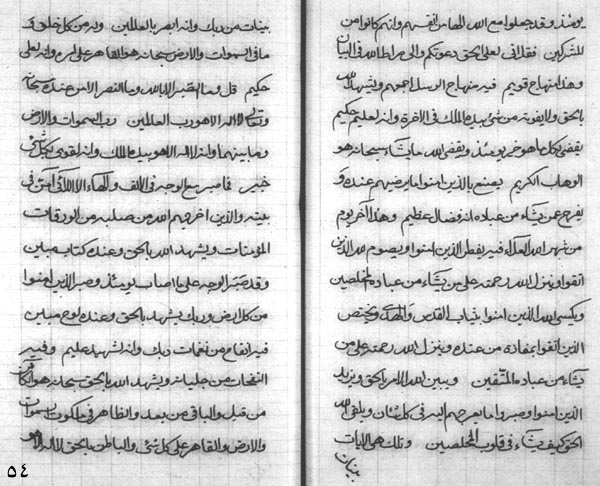 يومئذ وقد جعلوا مع الله الها من انفسهم وانهم كانوا من
المشركين فقل اني لعلى الحق دعوتكم والى صراط الله في البيان
وهذا منهاج قويم فيه منهاج الرسل اجمعهم ويشهد الله
بالحق ولا يفوته من شئ بيده الملك في الاخرة وانه لعليم حكيم
يقضي بكل ما هو خير يومئذ ويقضي الله ما يشاء سبحانه هو
الوهاب الكريم يصنع بالذين امنوا ما يرضيهم عنده و
يفرج عن يشاء من عباده انه فضال عظيم وهذا آخر يوم
من شهر الله العلاء فيه يفطر الذين امنوا ويصوم لله الذين
اتقوا وينزل الله رحمته على من يشاء من عباده المخلصين
ويكسي الله الذين امنوا بثياب القدس والهدى ويختص
الذين اتقوا بمفازة من عنده وينزل الله رحمته على من
يشاء من عباده المتقين ويبين الله الامر بالحق ويزيد
الذين امنوا وصبروا ما يعرجهم اليه في كل شأن ويلقي الله
الحق كيف يشاء في قلوب المخلصين وتلك هي الايات
بينات
بينات من ربك وانه ابصر بالعالمين وله من كل خلق و
ما في السموات والارض سبحانه هو القاهر على امره وانه لعلي
حكيم قل وما الصبر الا بالله وما النصر الا من عنده سبحانه
وتعالى لا اله الا هو رب العالمين رب السموات والارض
وما بينهما وانه لا اله الا هو بيده الملك وانه لقوي بكل شئ
خبير فاصبر مع الوجه في الالف والهاء الا انني الحق في
بينه والذين اخرجهم الله من صلبه من الورقات
المؤمنات ويشهد الله بالحق وعنده كتاب مبين
وقد صبر الوجه على ما اصاب يومئذ وصبر الذين امنوا
من كل ارض وربك يشهد بالحق وعنده لوح مبين
فيه ارتفاع من نغمات ربك وانه لشهيد عليم وفيه
النفحات من جليانه ويشهد الله بالحق سبحانه هو الكائن
من قبل والباقي من بعد والظاهر في ملكوت السموات
والارض والقاهر على كل شئ والباطن بالحق لا اله الا هو
٥٤